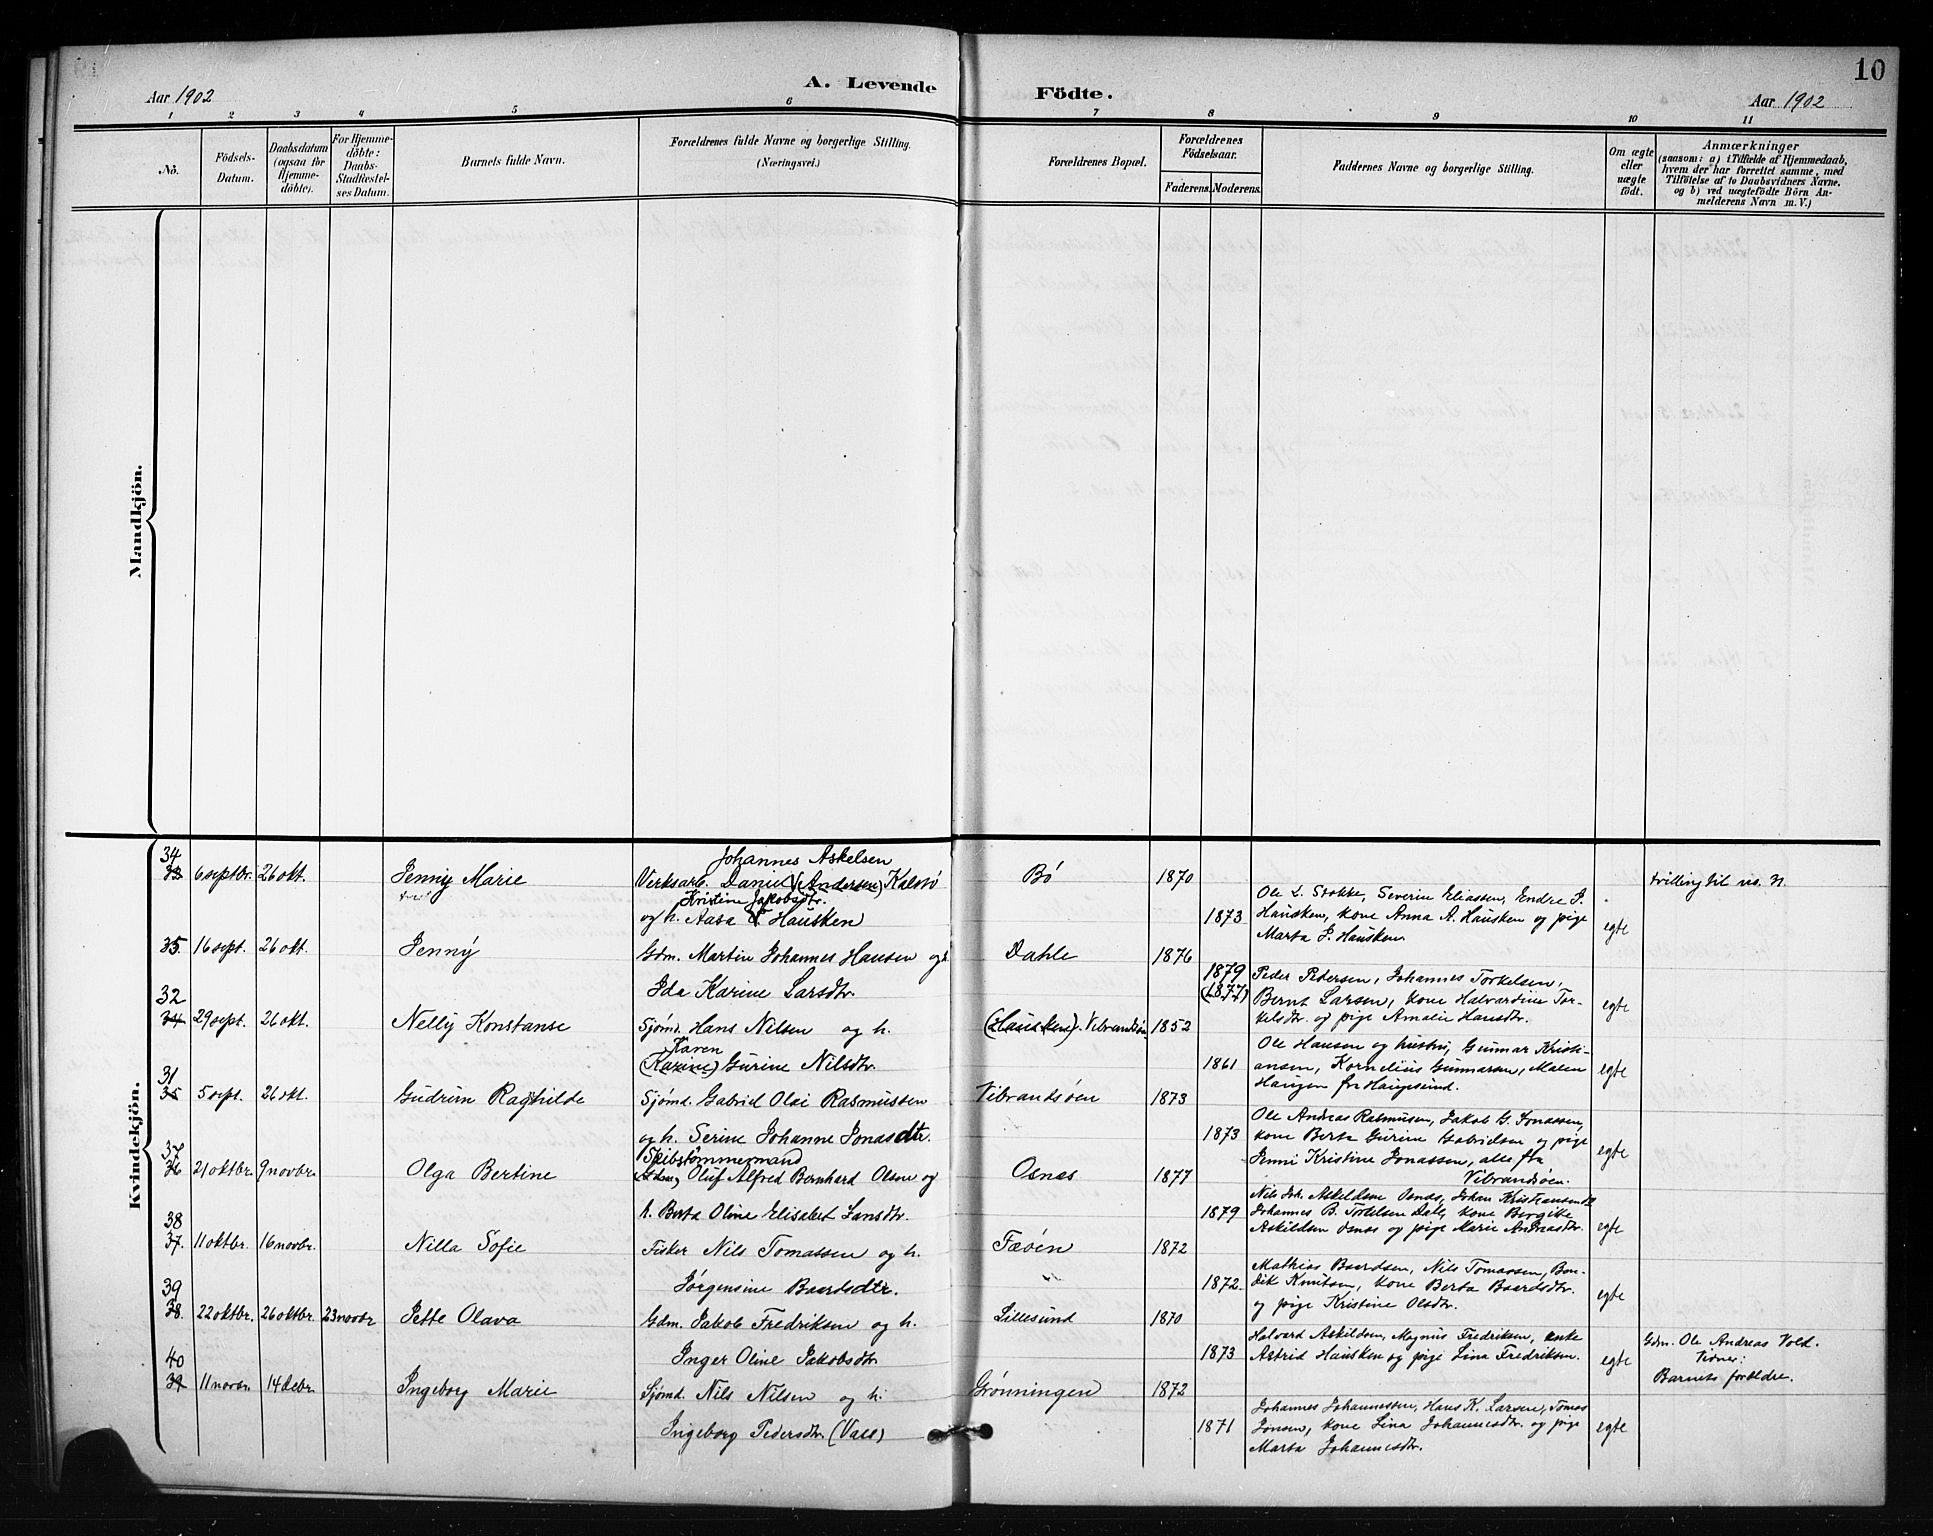 10
Aar 1902
A. Levende Födte.
Aar 1902
1 2 3 4 5 6 7 8 9 10 11
No.
Födsels-Datum.
Daabsdatum (ogsaa for Hjemme-döbte).
For Hjemme-döbte: Daabs-Stadfæstel-ses Datum.
Barnets fulde Navn.
Forældrenes fulde Navne og borgerlige Stilling. (Næringsvei.)
Forældrenes Bopæl.
Forældrenes Födselsaar.
Faderens. Moderens.
Faddernes Navne og borgerlige Stilling.
Om ægte eller uægte födt.
Anmærkninger
(saasom: a) i Tilfælde af Hjemmedaab,
hvem der har forrettet samme, med
Tilföielse af to Daabsvidners Navne.
og b) ved uægtefödte Börn An-
melderens Navn m. V.)
Mandkjön.
Kvindekjön.
34
33 6 septbr. 26 okt. Jenny Marie
Johannes Askelsen
Verksarb. Daniel (Andersen) Kalstö
Kristine Jakobsdtr.
og h. Aasa Hausken
Bö 1870
1873
Ole L. Stokke, Severin Eliassen, Endre J.
Hausken, kone Anna A. Hausken og pige
Marta J. Hausken.
egte
tvilling til
35. 16 sept. 26 okt. Jenny
Gdm. Martin Johannes Hansen og h.
Ida Karine Larsdtr.
Dahle 1876
1879
(1877)
Peder Pedersen, Johannes Torkelsen,
Bernt Larsen, kone Halvardine Tor-
kelsdtr. og pige Amalie Hansdtr.
egte
32
34 29 sept. 26 okt. Nelly Konstanse
Sjömd. Hans Nilsen og h.
Karen
(Karine) Gurine Nilsdtr.
(Hausken). Vibrandsöen 1852
1861
Ole Hansen og hustru, Gunnar Kristi-
ansen, Kornelius Gunnarsen, Malen
Haugen fra Haugesund.
egte
31
35 5 sept. 26 okt. Gudrun Raghilde
Sjömd. Gabriel Olai Rasmussen
og h. Serine Johanne Jonasdtr.
Vibrandsöen 1873
1873
Ole Andreas Rasmusen, Jakob G. Jonassen,
kone Berta Gurine Gabrielsen og pige
Jenni Kristine Jonassen, alle fra
Vibrandsöen.
egte
37
36 21 oktbr. 9 novbr. Olga Bertine
Skibstömmermand
Oluf Alfred Bernhard Olsen og
h. Berta Oline Elisabet Larsdtr.
Osnas 1877
1879
Nils Joh. Askildsen Osnas, Johan Kristiansen
Johannes B. Torkelsen Dale, kone Bergike
Askildsen Osnas og pige Marie Andreasdtr.
egte
38
37. 11 oktbr. 16 novbr. Nilla Sofie
Fisker Nils Tomassen og h.
Jörgensine Baardsdtr.
Fæöen 1872
" 1872
Mathias Baardsen, Nils Tomassen, Ben-
dik Knutsen, kone Berta Baardsdtr.
og pige Kristine Olsdtr.
egte
39
38. 22 oktbr. 26 oktbr. 23 novbr Jette Olava
Gdm. Jakob Fredriksen og h.
Inger Oline Jakobsdtr
Lillesund 1870
1873
Halvard Askildsen, Magnus Fredriksen, enke
Astrid Hausken og pige Lina Fredriksen.
egte
Gdm. Ole Andreas Vold.
Vidner:
Barnets forældre.
40
39 11 novbr. 14 debr. Ingeborg Marie
Sjömd. Nils Nilsen og h.
Ingeborg Pedersdtr. (Vall)
Grönningen 1872
1871
Johannes Johannessen, Hans K. Larsen, Tomas
Jonsen, kone Lina Johannesdtr. og pige
Marta Johannesdtr.
egte